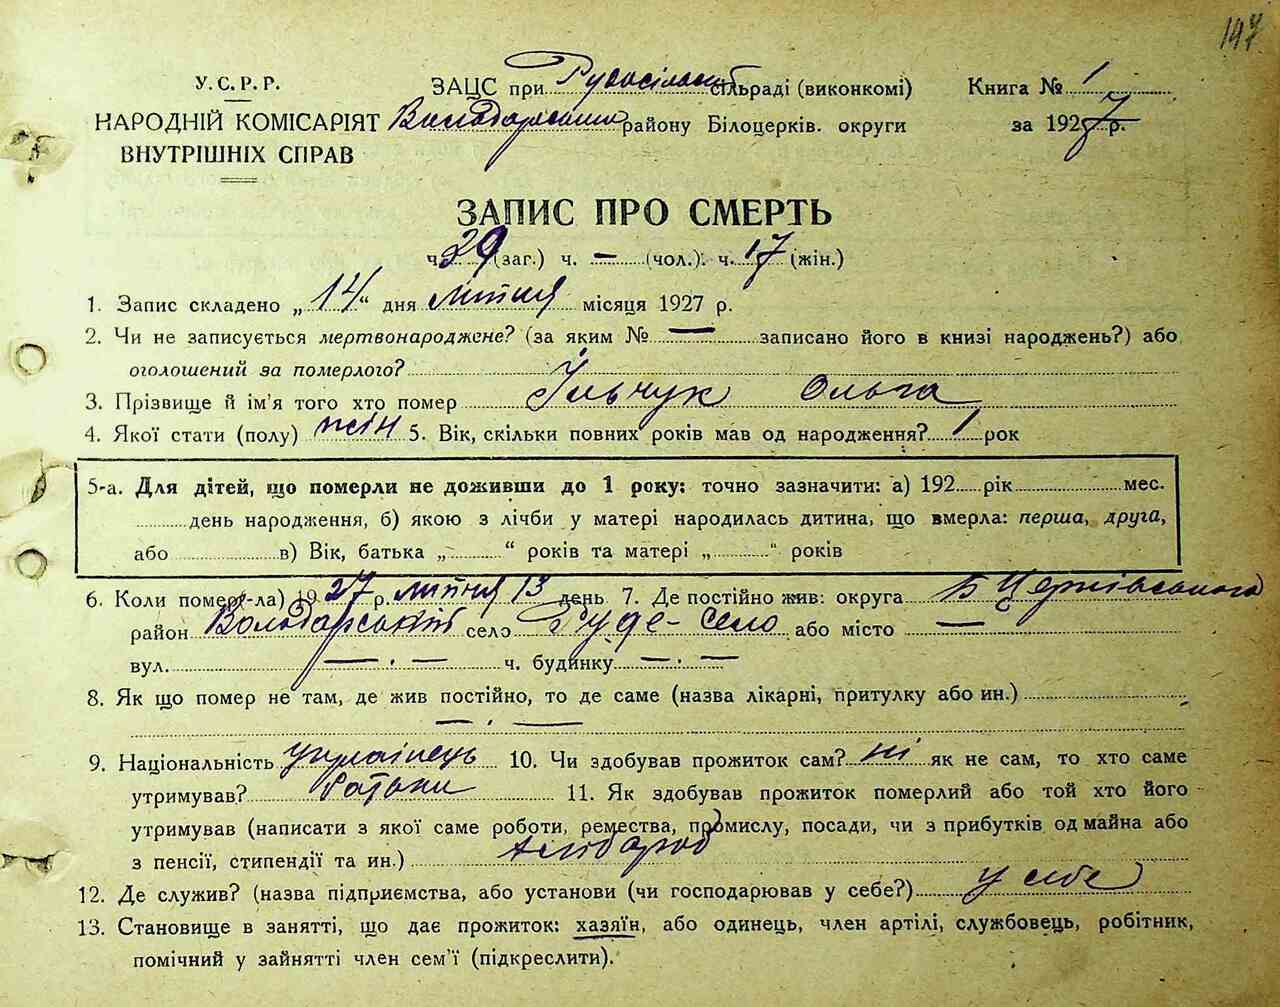 147
У.С.Р.Р.
НАРОДНІЙ КОМІСАРІЯТ
ВНУТРІШНІХ СПРАВ
ЗАЦС при Рудосільській сільраді (виконкомі)
Володарського району Білоцерків. округи
Книга № 1
за 1927 р.
ЗАПИС ПРО СМЕРТЬ
ч. 29 (заг.) ч. — (чол.). ч. 17 (жін.)
1. Запис складено „ 14 “ дня липня місяця 1927 р.
2. Чи не записується мертвонароджене? (за яким № — записано його в книзі народжень?) або
оголошений за померлого?
3. Прізвище й ім'я того хто помер Ільчук Ольга
4. Якої стати (полу) жін 5. Вік, скільки повних років мав од народження? 1 рок
5-а. Для дітей, що померли не доживши до 1 року: точно зазначити: а) 192 рік мес.
день народження, б) якою з лічби у матері народилась дитина, що вмерла: перша, друга,
або в) Вік, батька „ “ років та матері „ “ років
6. Коли помер(-ла) 1927 р. липня 13 день 7. Де постійно жив: округа Б Церківського
район Володарський село Руде-Село або місто —
вул. — . — ч. будинку — . —
8. Як що помер не там, де жив постійно, то де саме (назва лікарні, притулку або ин.)
— . —
9. Національність українець 10. Чи здобував прожиток сам? ні як не сам, то хто саме
утримував? батьки 11. Як здобував прожиток померлий або той хто його
утримував (написати з якої саме роботи, ремества, промислу, посади, чи з прибутків од майна або
з пенсії, стипендії та ин.) хлібороб
12. Де служив? (назва підприємства, або установи (чи господарював у себе?) у себе
13. Становище в занятті, що дає прожиток: хазяїн, або одинець, член артілі, службовець, робітник,
помічний у зайнятті член сем'ї (підкреслити).